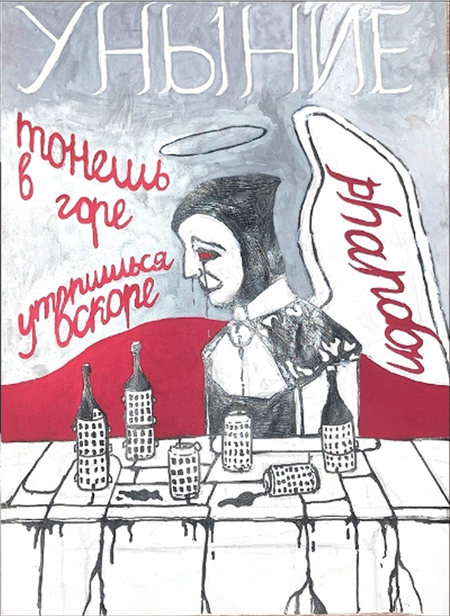 УНЫНИЕ
тонешь
в горе
утопишься
вскоре
phandon